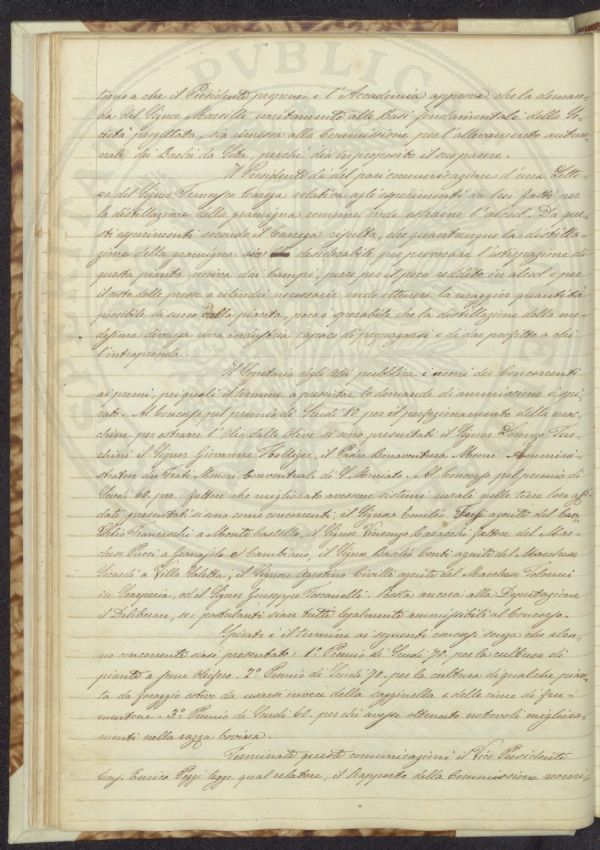 tunea che il Presidente propone e l'Accademia approva che la doman-
da del Signor Marsilli unitamente alle basi fondamentali della So-
cietà progettata, sia rimessa alla Commissione per l'allevamento autun-
nale dei Bachi da Seta, perchè dia in proposito il suo parere.
Il Presidente dà del pari comunicazione d'una Lette-
ra del Signor Francesco Carega relativa agli esperimenti da lui fatti per
la distillazione della gramigna comune, onde estrarne l'alcool. Da que-
sti esperimenti secondo il Carega risulta, che quantunque la distilla-
zione della gramigna sia desiderabile per provocare l'estirpazione di
questa pianta nociva dai Campi, pure per il poco reddito in alcool e per
il costo delle prese e cilindri necessarie onde ottenere la maggior quantità
possibile di succo dalla pianta, poco è sperabile che la distillazione della me-
desima divenga una industria capace di propagarsi e di dar profitto a chi
l'intraprenda.
Il Segretario degli Atti pubblica i nomi dei Concorrenti
ai premi, pei quali il termine a presentar le domande di ammissione è spi-
rato. Al Concorso pel premio di Scudi 80 per il perfezionamento delle mac-
chine per estrarre l'Olio dalle Olive si sono presentati il Signor Lorenzo Tur-
chini il Signor Giovanni Holleger, il Padre Bonaventura Meoni Amministra-
tore dei Frati Minori Conventuali di S. Miniato. Al Concorso pel premio di
Scudi 60 per i fattori che migliorato avessero sistemi rurali nelle terre loro affi-
date, presentati si sono come concorrenti, il Signor Emilio agente del Cav.
Franceschi a Monte Castello, il Signor Vincenzo Caracchi fattore del Mar-
chese Pucci a Granajolo e Cambiano, il Signor Basilio Conti agente del Marchese
Ricardi a Villa Saletta, il Signor Agostino Civilli agente del Marchese Tolomei
in Scarperia, ed il Signor Giuseppe Toscanelli. Resta ancora alla Deputazione
il Deliberare, se i postulanti siano tutti legalmente ammissibili al Concorso.
Spirato è il termine ai seguenti concorsi senza che alcu-
no concorrente siasi presentato: 1.º Premio di Scudi 70. per la cultura di
piante a seme oleifero. 2.º Premio di Scudi 70. per la cultura di qualche pian-
ta da foraggio estivo da usarsi invece della sagginella e delle cime di fru-
mentone. 3.º Premio di Scudi 60. per chi avesse ottenuto notevoli migliora-
menti nella razza bovina.
Terminate queste comunicazioni il Vice Presidente
Cav. Enrico Poggi legge qual relatore, il Rapporto della Commissione nomi-